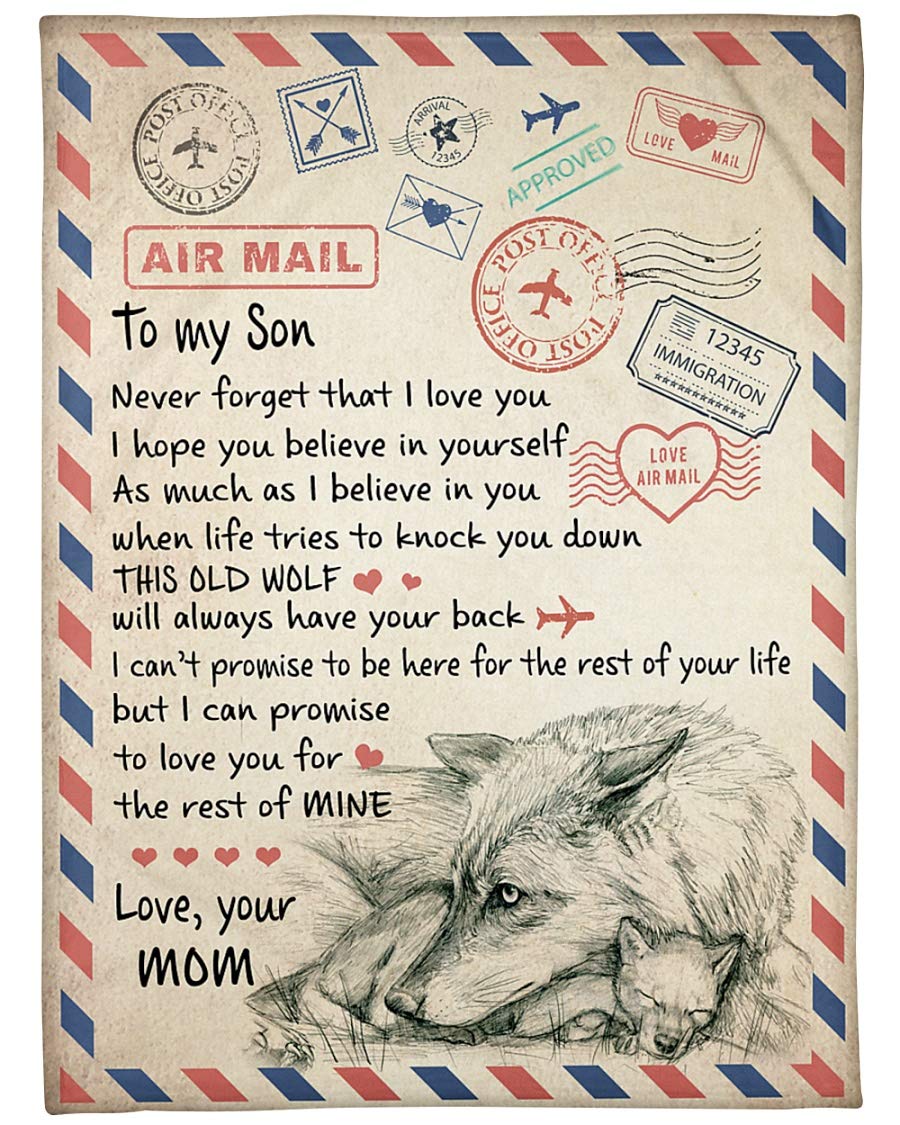 POST OFFICE POST OFFICE
ARRIVAL
12345
APPROVED
LOVE MAIL
AIR MAIL
POST OFFICE POST OFFICE
12345
IMMIGRATION
************
LOVE
AIR MAIL
To my Son
Never forget that I love you
I hope you believe in yourself
As much as I believe in you
when life tries to knock you down
THIS OLD WOLF
will always have your back
I can't promise to be here for the rest of your life
but I can promise
to love you for
the rest of MINE
Love, your
MOM